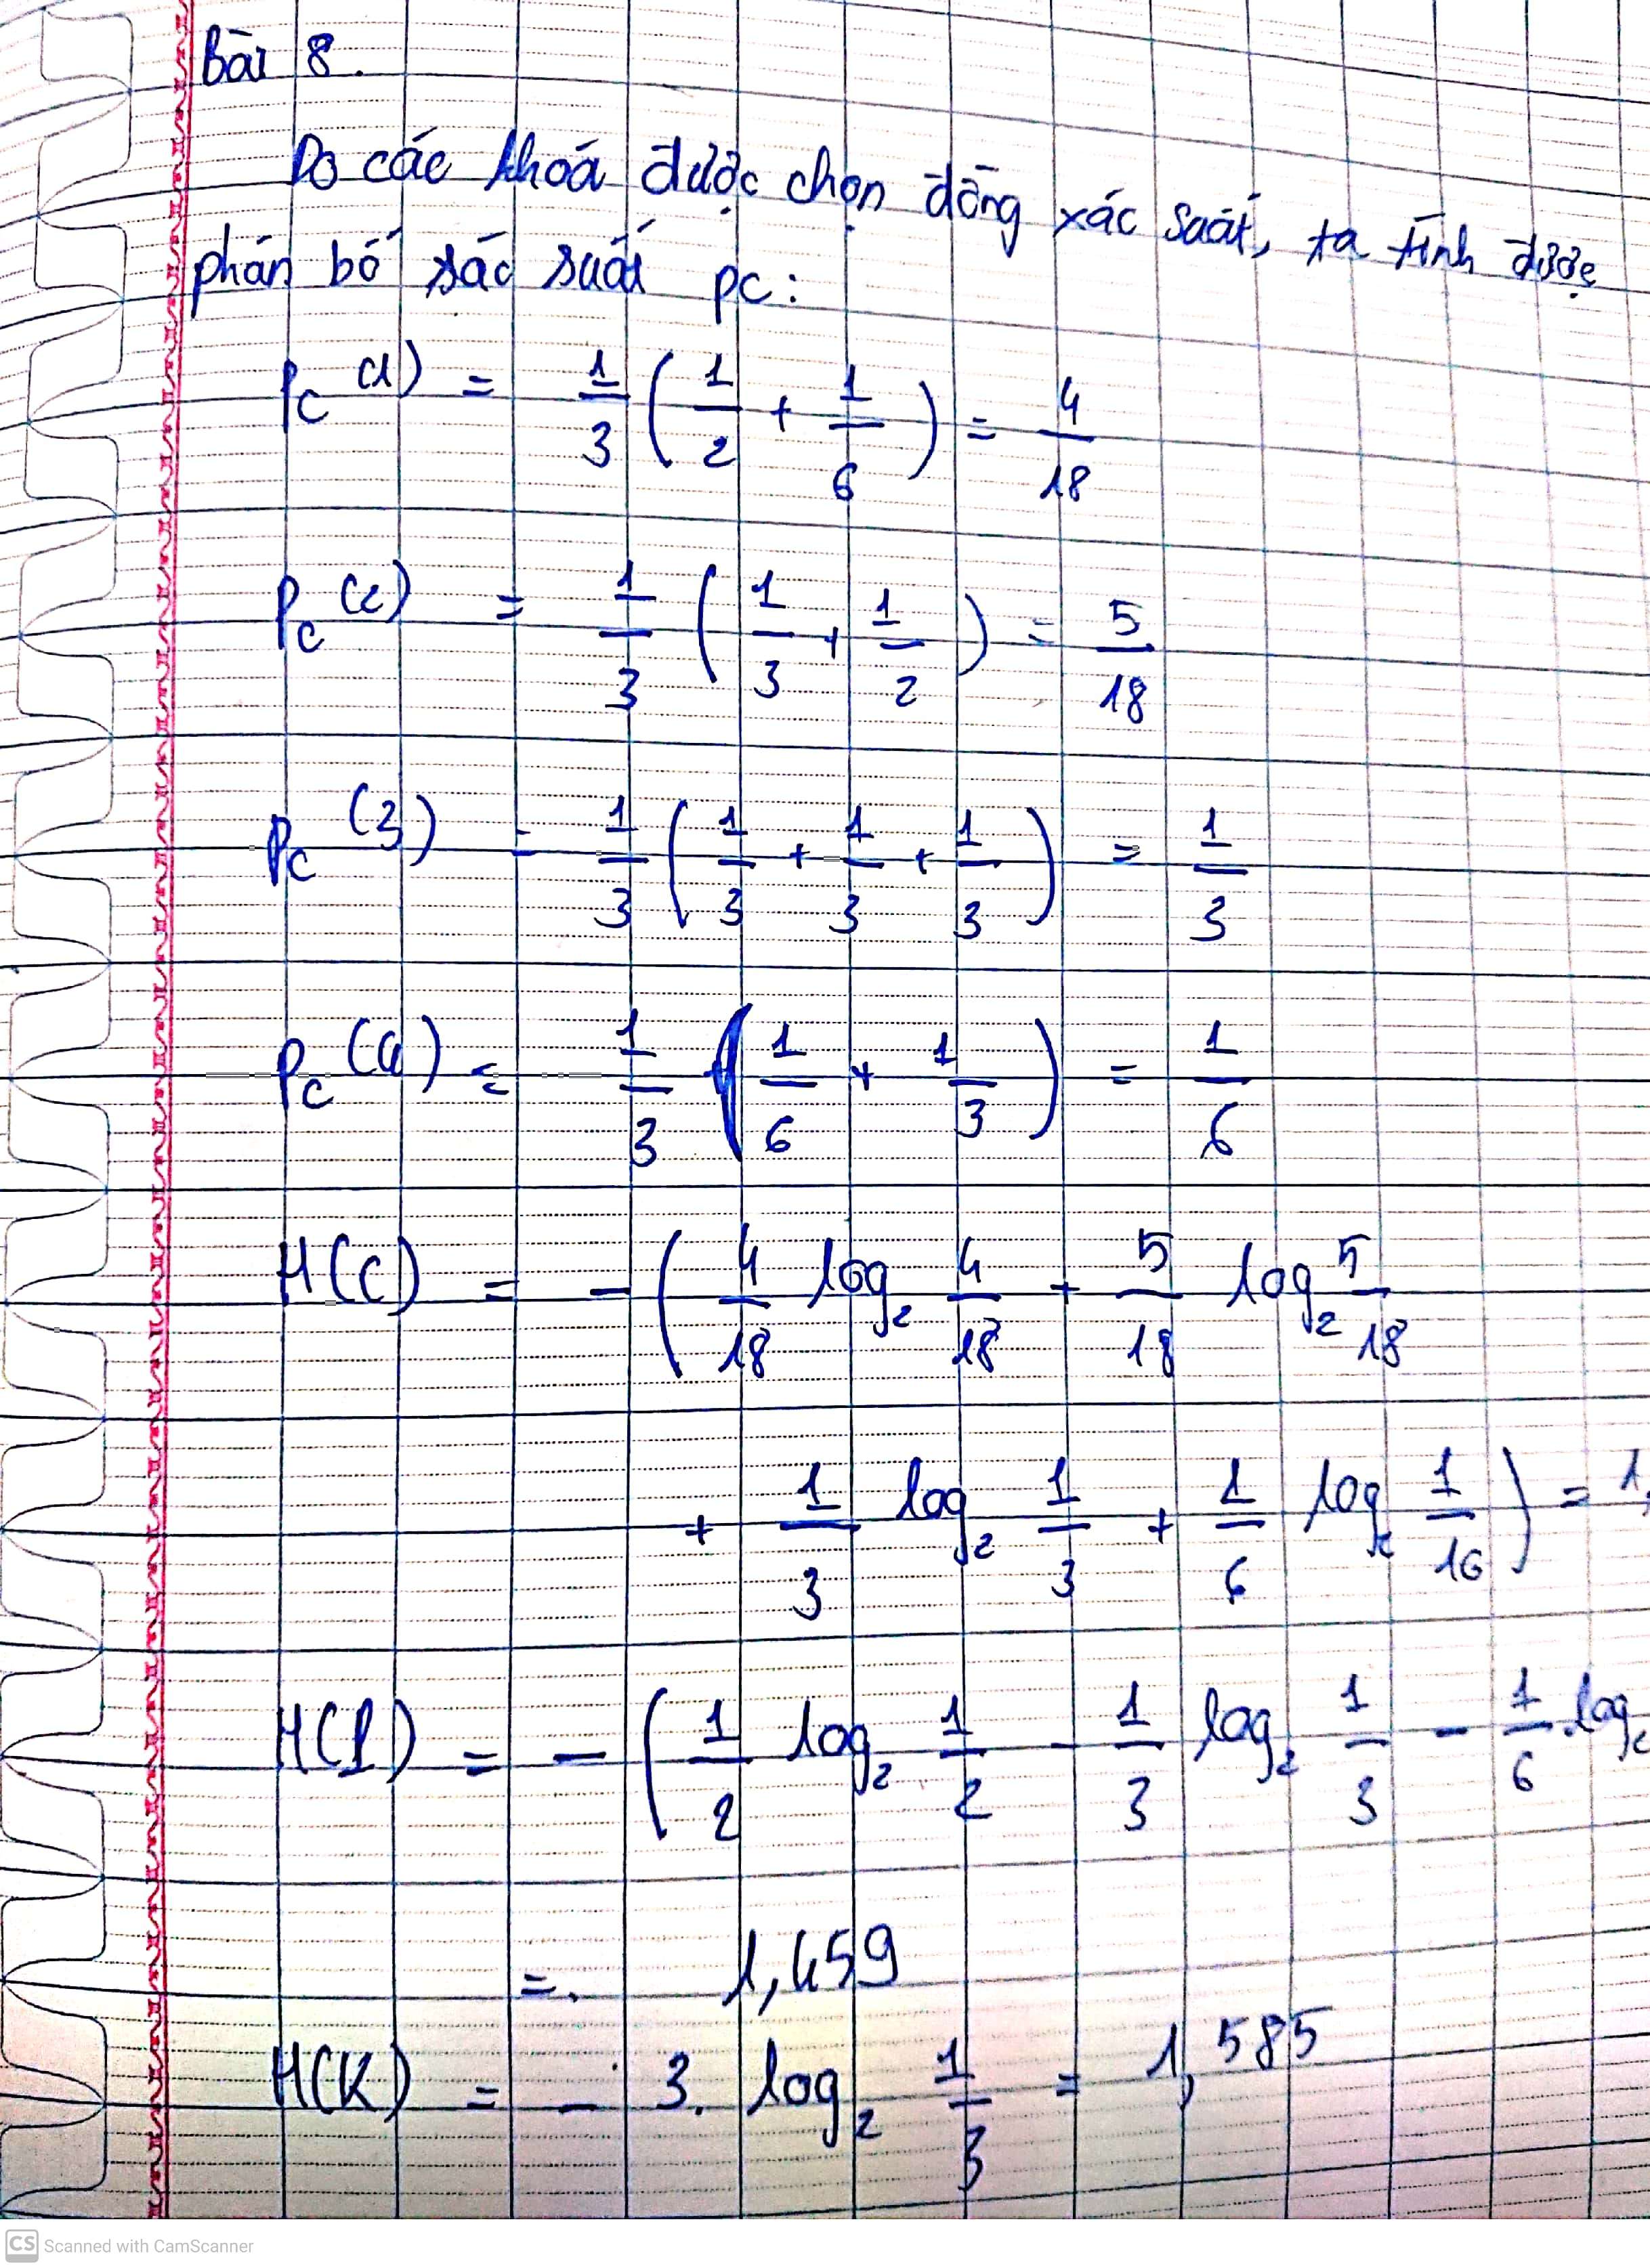 Bài 8.
Do các khoá được chọn đồng xác suất, ta tính được
phân bố xác suất pc:
Pc(1) = 1/3 (1/2 + 1/6) = 4/18
Pc(2) = 1/3 (1/3 + 1/2) = 5/18
Pc(3) = 1/3 (1/3 + 1/3 + 1/3) = 1/3
Pc(4) = 1/3 (1/6 + 1/3) = 1/6
H(C) = - (4/18 log₂ 4/18 + 5/18 log₂ 5/18
+ 1/3 log₂ 1/3 + 1/6 log₂ 1/16) = 1,
H(P) = - (1/2 log₂ 1/2 - 1/3 log₂ 1/3 - 1/6 log₂
= 1,459
H(K) = - 3. log₂ 1/3 = 1,585
CS Scanned with CamScanner